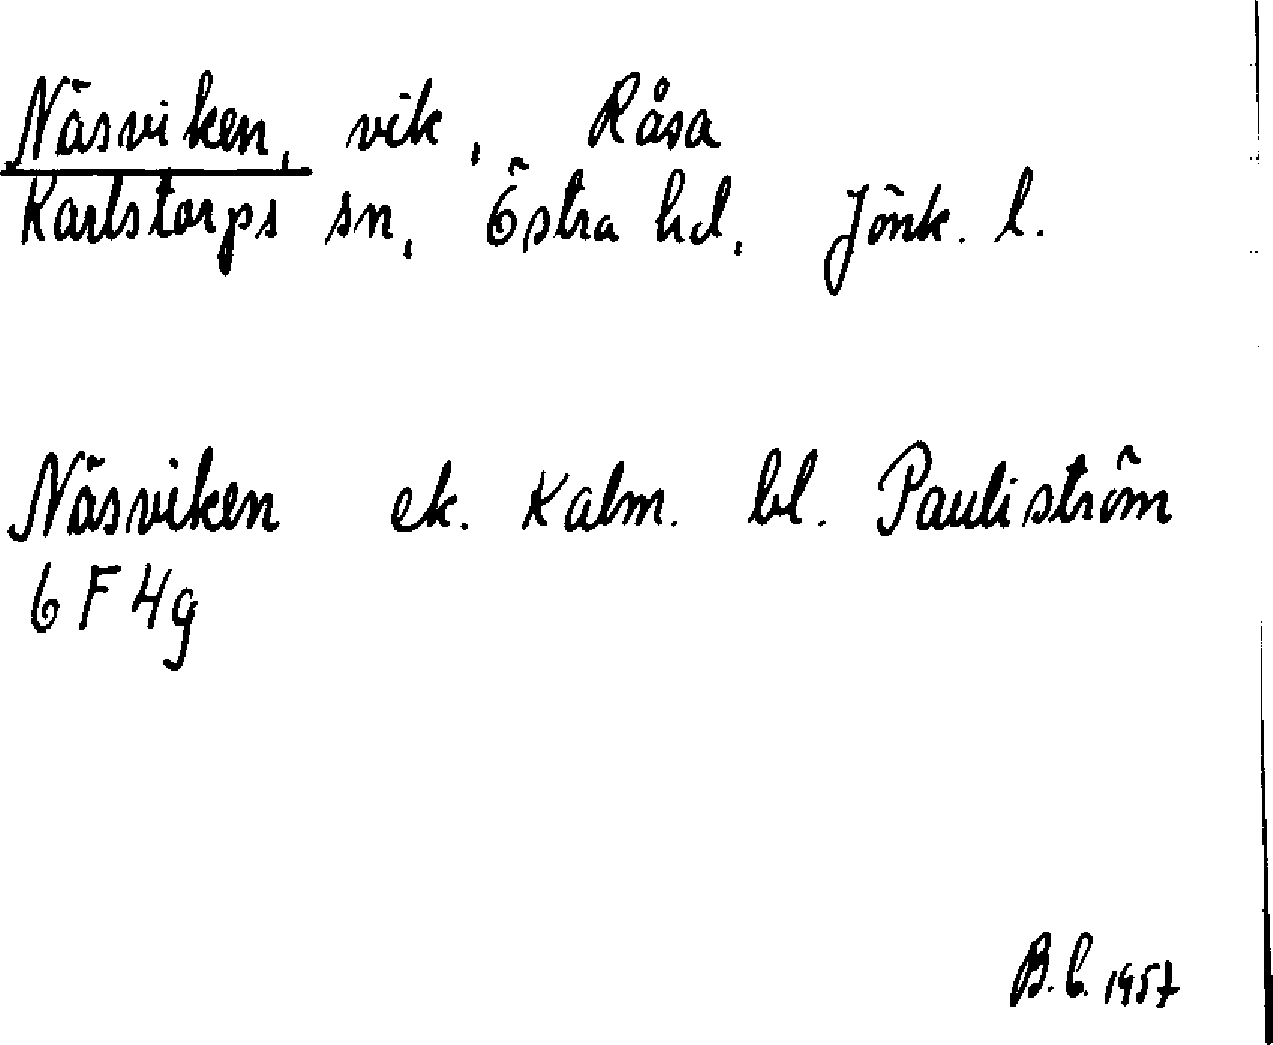 Näsviken, vik, Råsa
Karlstorps sn, Östra hd, Jönk. l.
Näsviken ek. Kalm. bl. Pauliström
6 F 4g
B. C. 1957